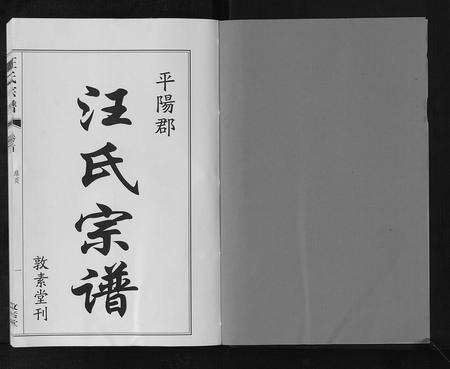 平陽郡
汪氏宗谱
敦素堂刊
汪氏宗譜
卷首
扉页
一